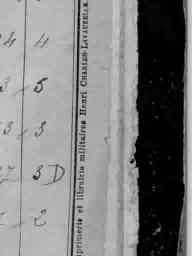 4 4
3 5
3 3
7 3 D
2
Imprimerie et librairie militaires Henri CHARLES-LAVAUZELLE